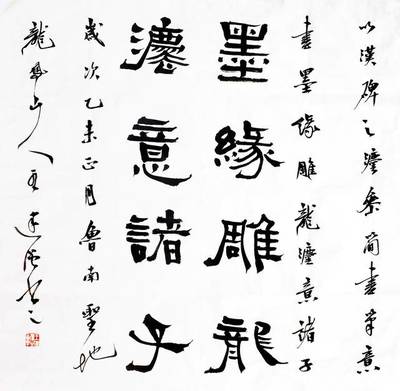 以漢碑之灋參簡書筆意
書墨緣雕龍灋意諸子
墨緣雕龍
灋意諸子
歲次乙未正月魯南聖地
龍鳳山人